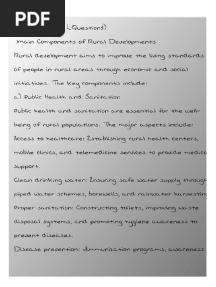 PDF
(Questions)
Main Components of Rural Developments
Rural development aims to improve the living standards
of people in rural areas through economic and social
initiatives. The key components include:
a) Public Health and Sanitation
Public health and sanitation are essential for the well-
being of rural populations. The major aspects include:
Access to healthcare: Establishing rural health centers,
mobile clinics, and telemedicine services to provide medica
support.
Clean drinking water: Ensuring safe water supply through
piped water schemes, borewells, and rainwater harvestin
Proper sanitation: Constructing toilets, improving waste
disposal systems, and promoting hygiene awareness to
prevent diseases.
Disease prevention: Immunization programs, awareness